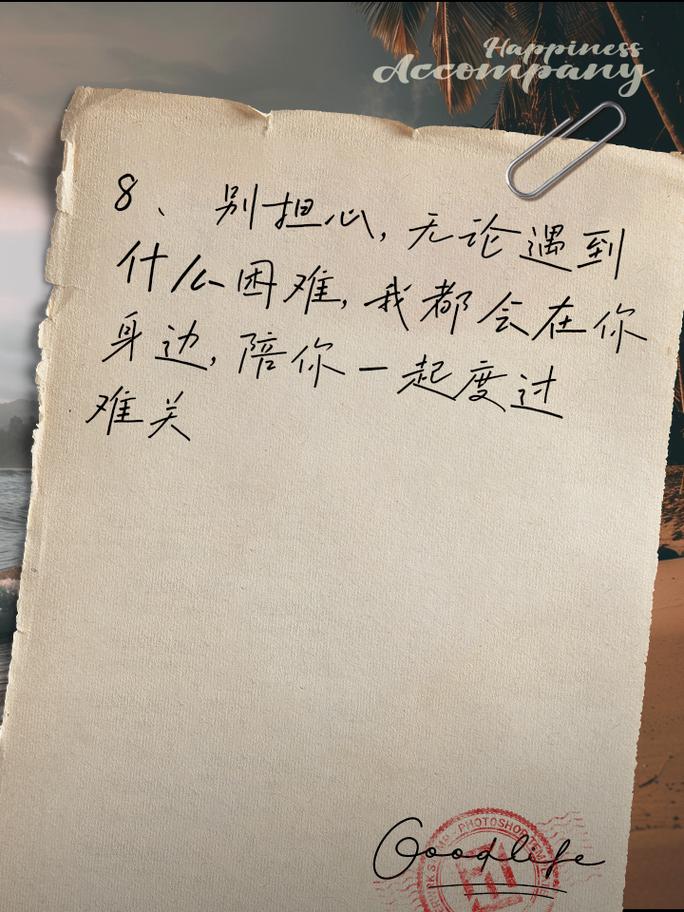 Happiness
Accompany
8、别担心,无论遇到
什么困难,我都会在你
身边,陪你一起度过
难关
PHOTOSHOP
Goodlife